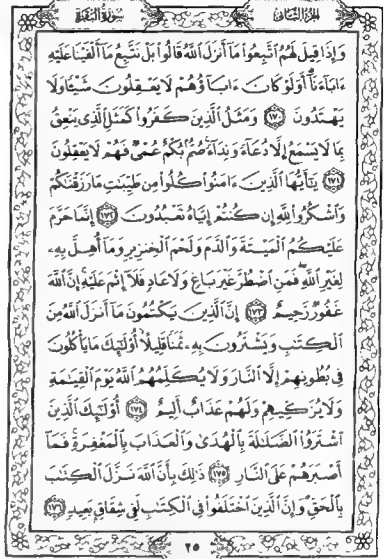 سورة البقرة
الجزء الثاني
وَإِذَا قِيلَ لَهُمُ اتَّبِعُوا مَا أَنزَلَ اللَّهُ قَالُوا بَلْ نَتَّبِعُ مَا أَلْفَيْنَا عَلَيْهِ
ءَابَآءَنَآ أَوَلَوْ كَانَ ءَابَآؤُهُمْ لَا يَعْقِلُونَ شَيْئًا وَلَا
يَهْتَدُونَ ١٧٠ وَمَثَلُ الَّذِينَ كَفَرُوا كَمَثَلِ الَّذِي يَنْعِقُ
بِمَا لَا يَسْمَعُ إِلَّا دُعَآءً وَنِدَآءً صُمٌّ بُكْمٌ عُمْيٌ فَهُمْ لَا يَعْقِلُونَ
١٧١ يَٰٓأَيُّهَا الَّذِينَ ءَامَنُوا كُلُوا مِن طَيِّبَٰتِ مَا رَزَقْنَٰكُمْ
وَاشْكُرُوا لِلَّهِ إِن كُنتُمْ إِيَّاهُ تَعْبُدُونَ ١٧٢ إِنَّمَا حَرَّمَ
عَلَيْكُمُ الْمَيْتَةَ وَالدَّمَ وَلَحْمَ الْخِنزِيرِ وَمَآ أُهِلَّ بِهِۦ
لِغَيْرِ اللَّهِ فَمَنِ اضْطُرَّ غَيْرَ بَاغٍ وَلَا عَادٍ فَلَآ إِثْمَ عَلَيْهِ إِنَّ اللَّهَ
غَفُورٌ رَّحِيمٌ ١٧٣ إِنَّ الَّذِينَ يَكْتُمُونَ مَآ أَنزَلَ اللَّهُ مِنَ
الْكِتَٰبِ وَيَشْتَرُونَ بِهِۦ ثَمَنًا قَلِيلًا أُو۟لَٰٓئِكَ مَا يَأْكُلُونَ
فِي بُطُونِهِمْ إِلَّا النَّارَ وَلَا يُكَلِّمُهُمُ اللَّهُ يَوْمَ الْقِيَٰمَةِ
وَلَا يُزَكِّيهِمْ وَلَهُمْ عَذَابٌ أَلِيمٌ ١٧٤ أُو۟لَٰٓئِكَ الَّذِينَ
اشْتَرَوُا الضَّلَٰلَةَ بِالْهُدَىٰ وَالْعَذَابَ بِالْمَغْفِرَةِ فَمَآ
أَصْبَرَهُمْ عَلَى النَّارِ ١٧٥ ذَٰلِكَ بِأَنَّ اللَّهَ نَزَّلَ الْكِتَٰبَ
بِالْحَقِّ وَإِنَّ الَّذِينَ اخْتَلَفُوا فِي الْكِتَٰبِ لَفِي شِقَاقٍ بَعِيدٍ ١٧٦
٢٥